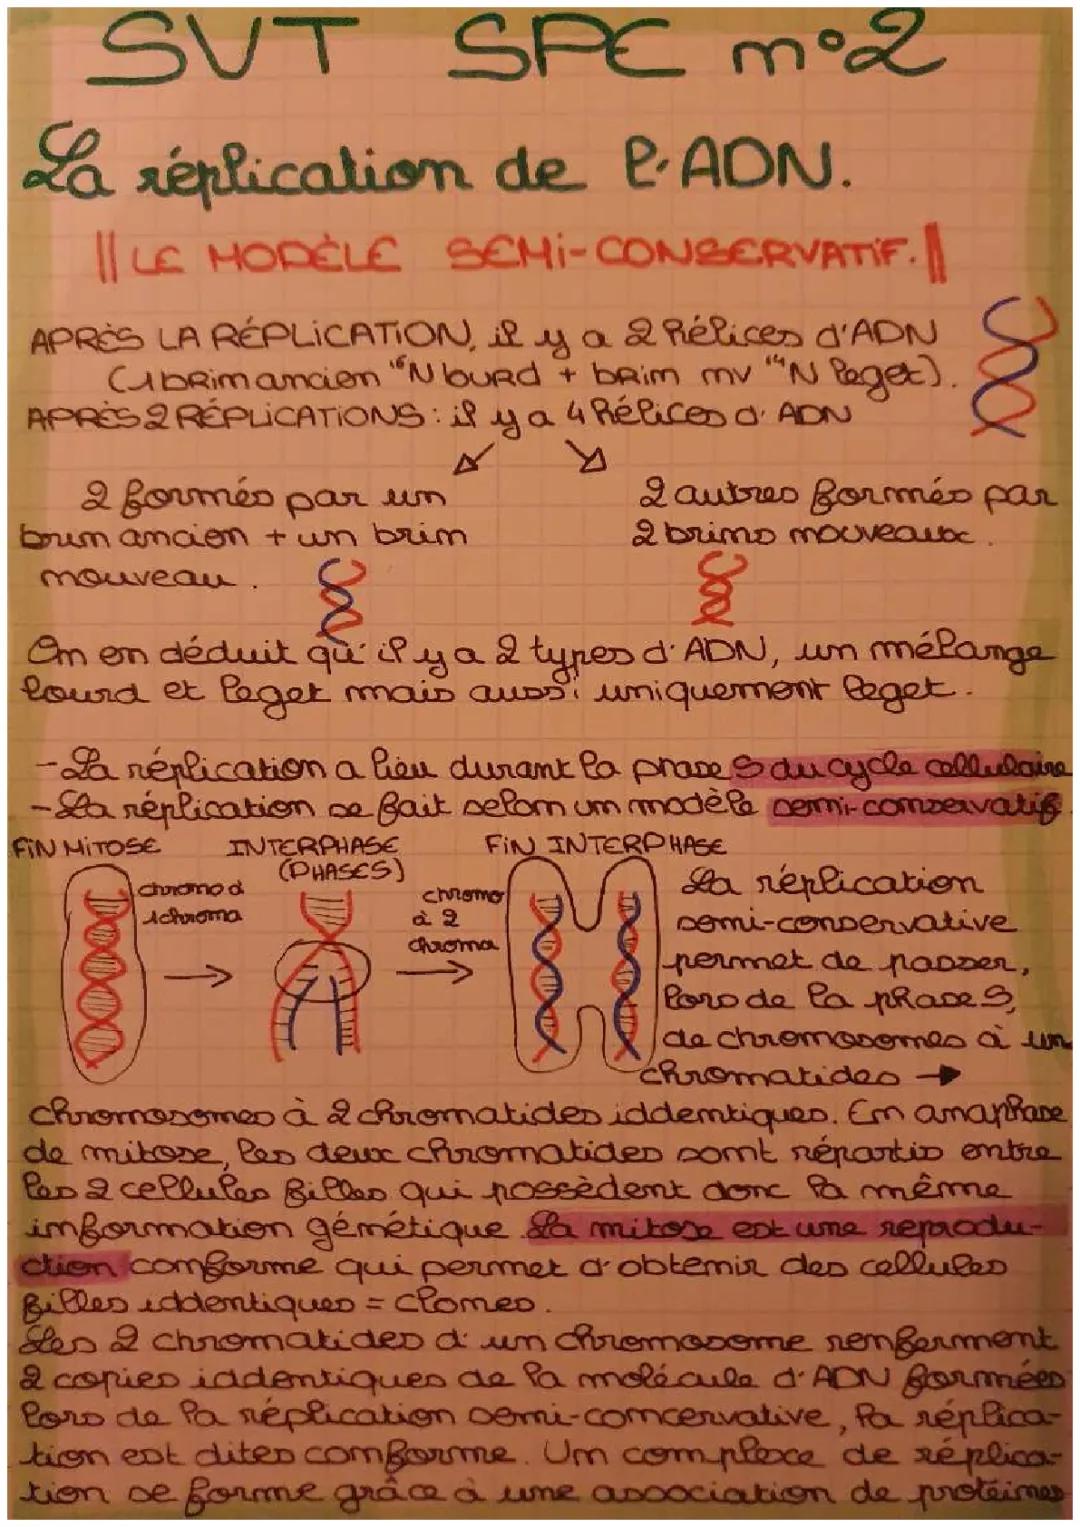 SVT SPE n°2
La réplication de l'ADN.
|| LE MODÈLE SEMI-CONSERVATIF. ||
APRÈS LA RÉPLICATION, il y a 2 hélices d'ADN
(1 brim ancien "⁶N lourd + brim nv "¹⁴N leget).
APRÈS 2 RÉPLICATIONS : il y a 4 hélices d'ADN
2 formés par un
brin ancien + un brim
nouveau.
2 autres formés par
2 brins nouveaux.
On en déduit qu'il y a 2 types d'ADN, un mélange
lourd et leget mais aussi uniquement leget.
- La réplication a lieu durant la phase S du cycle cellulaire
- La réplication se fait selon un modèle semi-conservatif
FIN MITOSE
INTERPHASE
(PHASES)
FIN INTERPHASE
chromo à
1 chroma
chromo
à 2
chroma
La réplication
semi-conservative
permet de passer,
lors de la phase S,
de chromosomes à un
chromatides →
chromosomes à 2 chromatides iddentiques. En anaphase
de mitose, les deux chromatides sont répartis entre
les 2 cellules filles qui possèdent donc la même
information génétique. La mitose est une reprodu-
ction conforme qui permet d'obtenir des cellules
filles iddentiques = clones.
Les 2 chromatides d'un chromosome renferment
2 copies iddentiques de la molécule d'ADN formées
lors de la réplication semi-concervative, la réplica-
tion est dites conforme. Un complexe de réplica-
tion se forme grâce à une association de protéines